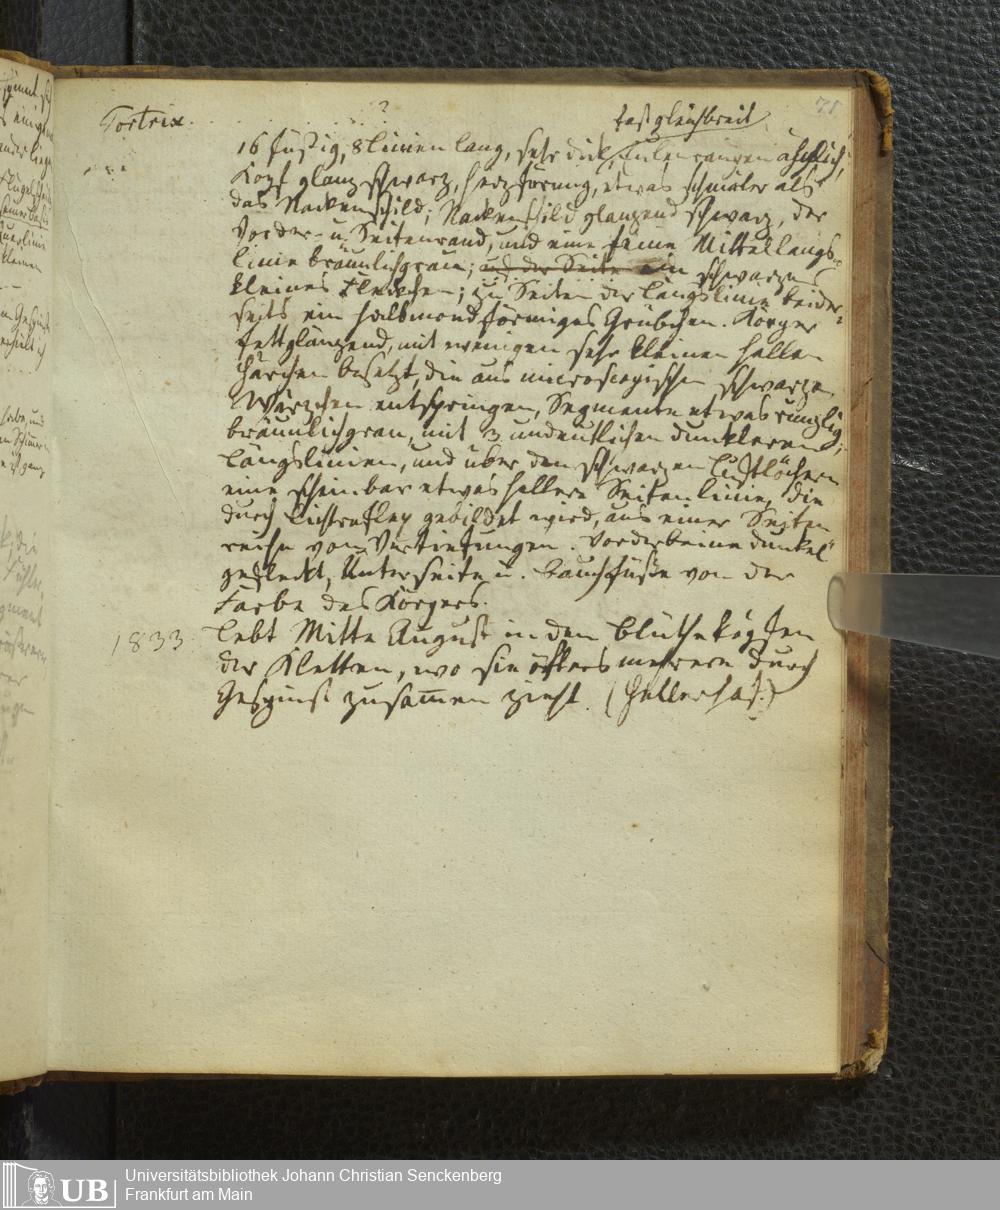 71
Tortrix . . . . . . ?
fast gleichbreit
16 füßig, 8 Linien lang, sehr dick, Eulenraupen ähnlich,
Kopf glanz schwarz, herzförmig, etwas schmäler als
das Nackenschild; Nackenschild glänzend schwarz, der
Vorder- u. Seitenrand, und eine feine Mittellängs-
linie bräunlichgrau; und der Seite ein schwarzes
kleines Fleckchen; zu Seiten der Längslinie beider-
seits ein halbmondförmiges Grübchen. Körper
fettglänzend, mit wenigen sehr kleinen hellen
Härchen besetzt, die aus microscopischen schwarzen
Wärzchen entspringen, Segmente etwas runzlig,
bräunlichgrau, mit 3 undeutlichen dunkleren
Längslinien, und über den schwarzen Luftlöchern
eine scheinbar etwas hellere Seitenlinie, die
durch Lichtreflex gebildet wird, aus einer Seiten
reihe von Vertiefungen. Vorderbeine dunkel
gefleckt, Unterseite u. Bauchfüße von der
Farbe des Körpers.
1833. Lebt Mitte August in den Blütheköpfen
der Kletten, wo sie öfters mehrere durch
Gespinst zusammen zieht. (Hellerhof.)
UB
Universitätsbibliothek Johann Christian Senckenberg
Frankfurt am Main